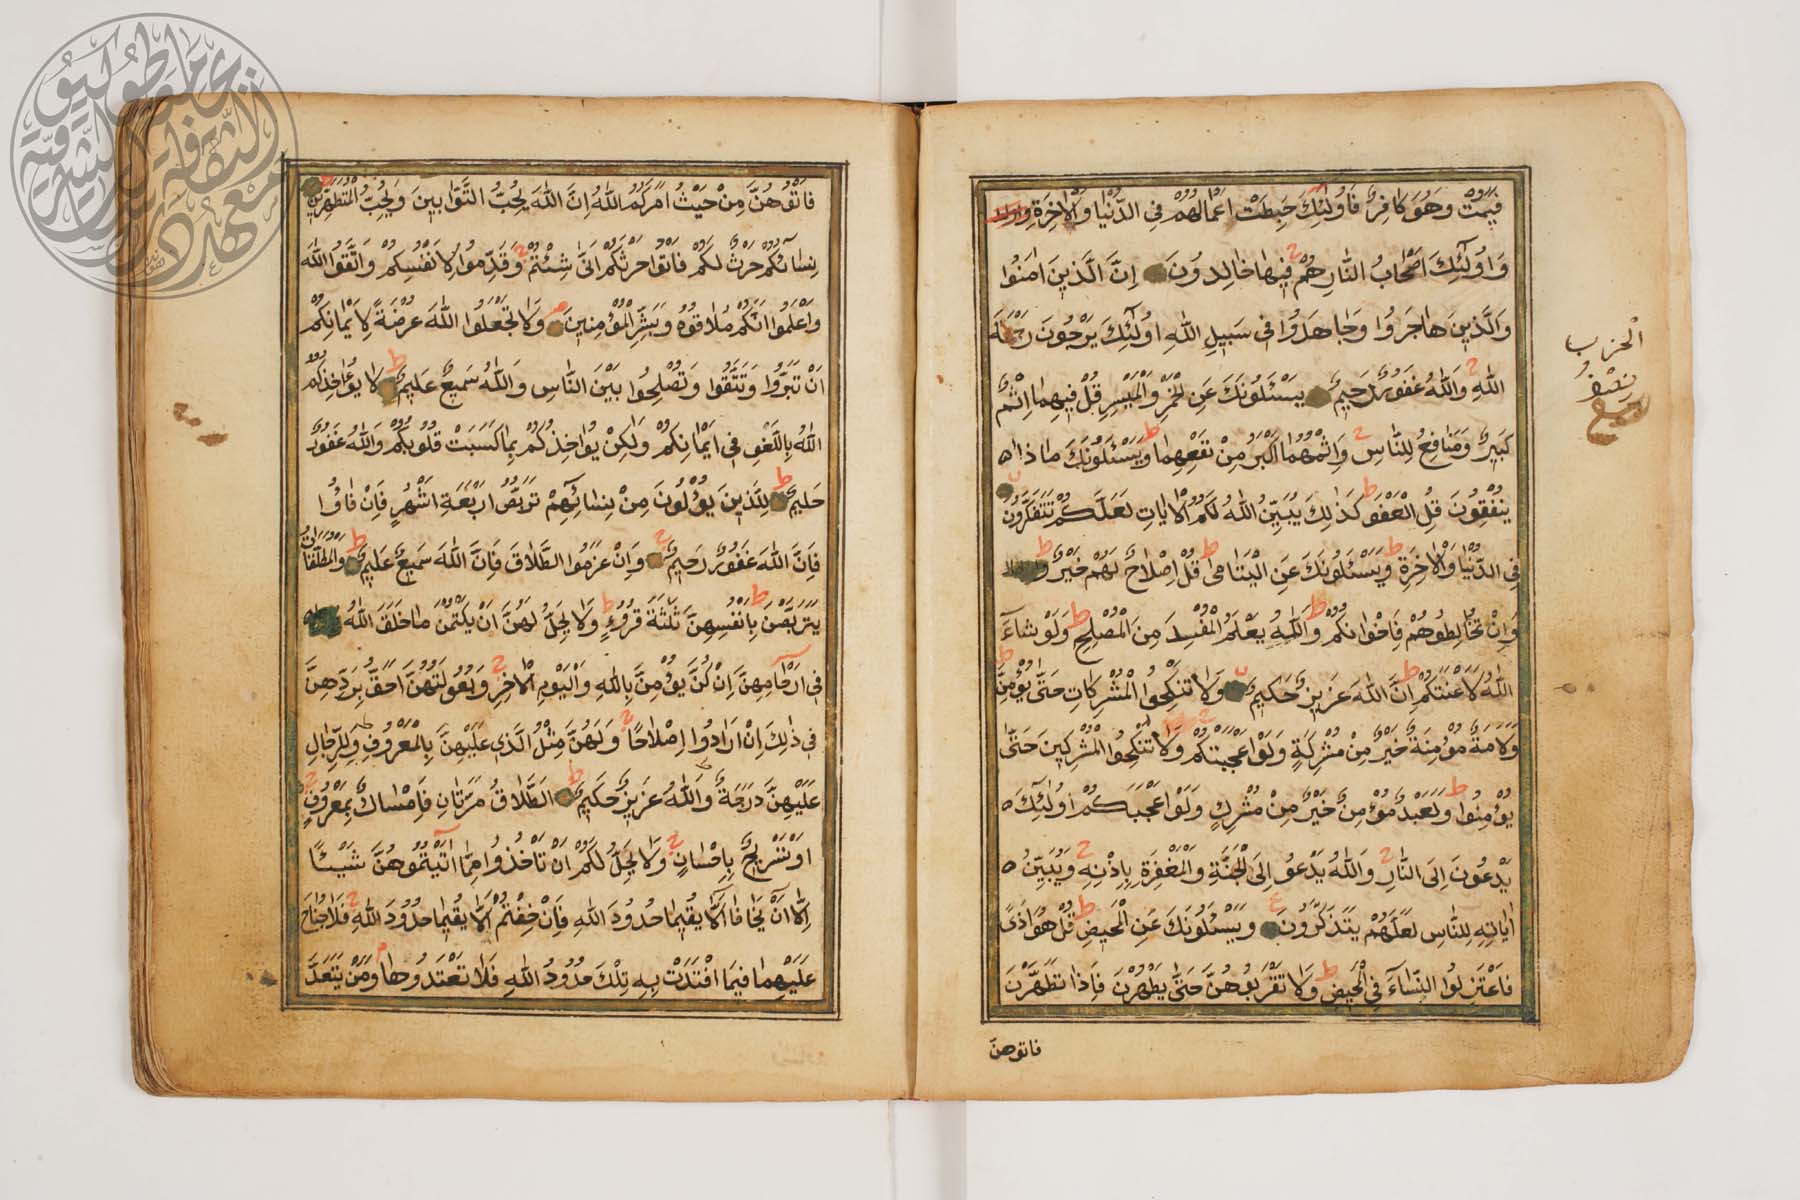 فَيَمُتْ وَهُوَ كَافِرٌ فَاُولٰئِكَ حَبِطَتْ اَعْمَالُهُمْ فِي الدُّنْيَا وَالْاٰخِرَةِ
وَاُولٰئِكَ اَصْحَابُ النَّارِ هُمْ فِيهَا خَالِدُونَ اِنَّ الَّذِينَ اٰمَنُوا
وَالَّذِينَ هَاجَرُوا وَجَاهَدُوا فِي سَبِيلِ اللّٰهِ اُولٰئِكَ يَرْجُونَ رَحْمَةَ
اللّٰهِ وَاللّٰهُ غَفُورٌ رَحِيمٌ يَسْـَٔلُونَكَ عَنِ الْخَمْرِ وَالْمَيْسِرِ قُلْ فِيهِمَا اِثْمٌ
كَبِيرٌ وَمَنَافِعُ لِلنَّاسِ وَاِثْمُهُمَا اَكْبَرُ مِنْ نَفْعِهِمَا وَيَسْـَٔلُونَكَ مَاذَا
يُنْفِقُونَ قُلِ الْعَفْوَ كَذٰلِكَ يُبَيِّنُ اللّٰهُ لَكُمُ الْاٰيَاتِ لَعَلَّكُمْ تَتَفَكَّرُونَ
فِي الدُّنْيَا وَالْاٰخِرَةِ وَيَسْـَٔلُونَكَ عَنِ الْيَتَامٰى قُلْ اِصْلَاحٌ لَهُمْ خَيْرٌ
وَاِنْ تُخَالِطُوهُمْ فَاِخْوَانُكُمْ وَاللّٰهُ يَعْلَمُ الْمُفْسِدَ مِنَ الْمُصْلِحِ وَلَوْ شَاءَ
اللّٰهُ لَاَعْنَتَكُمْ اِنَّ اللّٰهَ عَزِيزٌ حَكِيمٌ وَلَا تَنْكِحُوا الْمُشْرِكَاتِ حَتّٰى يُؤْمِنَّ
وَلَاَمَةٌ مُؤْمِنَةٌ خَيْرٌ مِنْ مُشْرِكَةٍ وَلَوْ اَعْجَبَتْكُمْ وَلَا تُنْكِحُوا الْمُشْرِكِينَ حَتّٰى
يُؤْمِنُوا وَلَعَبْدٌ مُؤْمِنٌ خَيْرٌ مِنْ مُشْرِكٍ وَلَوْ اَعْجَبَكُمْ اُولٰئِكَ
يَدْعُونَ اِلَى النَّارِ وَاللّٰهُ يَدْعُو اِلَى الْجَنَّةِ وَالْمَغْفِرَةِ بِاِذْنِهِ وَيُبَيِّنُ
اٰيَاتِهِ لِلنَّاسِ لَعَلَّهُمْ يَتَذَكَّرُونَ وَيَسْـَٔلُونَكَ عَنِ الْمَحِيضِ قُلْ هُوَ اَذًى
فَاعْتَزِلُوا النِّسَاءَ فِي الْمَحِيضِ وَلَا تَقْرَبُوهُنَّ حَتّٰى يَطْهُرْنَ فَاِذَا تَطَهَّرْنَ
فاتوهنّ
الحزب
نصف
فَاْتُوهُنَّ مِنْ حَيْثُ اَمَرَكُمُ اللّٰهُ اِنَّ اللّٰهَ يُحِبُّ التَّوَّابِينَ وَيُحِبُّ الْمُتَطَهِّرِينَ
نِسَاؤُكُمْ حَرْثٌ لَكُمْ فَاْتُوا حَرْثَكُمْ اَنّٰى شِئْتُمْ وَقَدِّمُوا لِاَنْفُسِكُمْ وَاتَّقُوا اللّٰهَ
وَاعْلَمُوا اَنَّكُمْ مُلَاقُوهُ وَبَشِّرِ الْمُؤْمِنِينَ وَلَا تَجْعَلُوا اللّٰهَ عُرْضَةً لِاَيْمَانِكُمْ
اَنْ تَبَرُّوا وَتَتَّقُوا وَتُصْلِحُوا بَيْنَ النَّاسِ وَاللّٰهُ سَمِيعٌ عَلِيمٌ لَا يُؤَاخِذُكُمُ
اللّٰهُ بِاللَّغْوِ فِي اَيْمَانِكُمْ وَلٰكِنْ يُؤَاخِذُكُمْ بِمَا كَسَبَتْ قُلُوبُكُمْ وَاللّٰهُ غَفُورٌ
حَلِيمٌ لِلَّذِينَ يُؤْلُونَ مِنْ نِسَائِهِمْ تَرَبُّصُ اَرْبَعَةِ اَشْهُرٍ فَاِنْ فَاؤُا
فَاِنَّ اللّٰهَ غَفُورٌ رَحِيمٌ وَاِنْ عَزَمُوا الطَّلَاقَ فَاِنَّ اللّٰهَ سَمِيعٌ عَلِيمٌ وَالْمُطَلَّقَاتُ
يَتَرَبَّصْنَ بِاَنْفُسِهِنَّ ثَلٰثَةَ قُرُوءٍ وَلَا يَحِلُّ لَهُنَّ اَنْ يَكْتُمْنَ مَا خَلَقَ اللّٰهُ
فِي اَرْحَامِهِنَّ اِنْ كُنَّ يُؤْمِنَّ بِاللّٰهِ وَالْيَوْمِ الْاٰخِرِ وَبُعُولَتُهُنَّ اَحَقُّ بِرَدِّهِنَّ
فِي ذٰلِكَ اِنْ اَرَادُوا اِصْلَاحًا وَلَهُنَّ مِثْلُ الَّذِي عَلَيْهِنَّ بِالْمَعْرُوفِ وَلِلرِّجَالِ
عَلَيْهِنَّ دَرَجَةٌ وَاللّٰهُ عَزِيزٌ حَكِيمٌ اَلطَّلَاقُ مَرَّتَانِ فَاِمْسَاكٌ بِمَعْرُوفٍ
اَوْ تَسْرِيحٌ بِاِحْسَانٍ وَلَا يَحِلُّ لَكُمْ اَنْ تَاْخُذُوا مِمَّا اٰتَيْتُمُوهُنَّ شَيْـًٔا
اِلَّا اَنْ يَخَافَا اَلَّا يُقِيمَا حُدُودَ اللّٰهِ فَاِنْ خِفْتُمْ اَلَّا يُقِيمَا حُدُودَ اللّٰهِ فَلَا جُنَاحَ
عَلَيْهِمَا فِيمَا افْتَدَتْ بِهِ تِلْكَ حُدُودُ اللّٰهِ فَلَا تَعْتَدُوهَا وَمَنْ يَتَعَدَّ